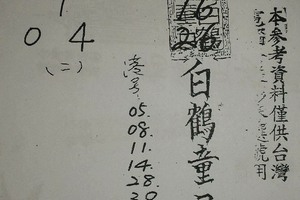 本參考資料僅供台灣
16
26
白鶴童
1
0 4
(二)
港号
05.
08.
11.
14.
28.